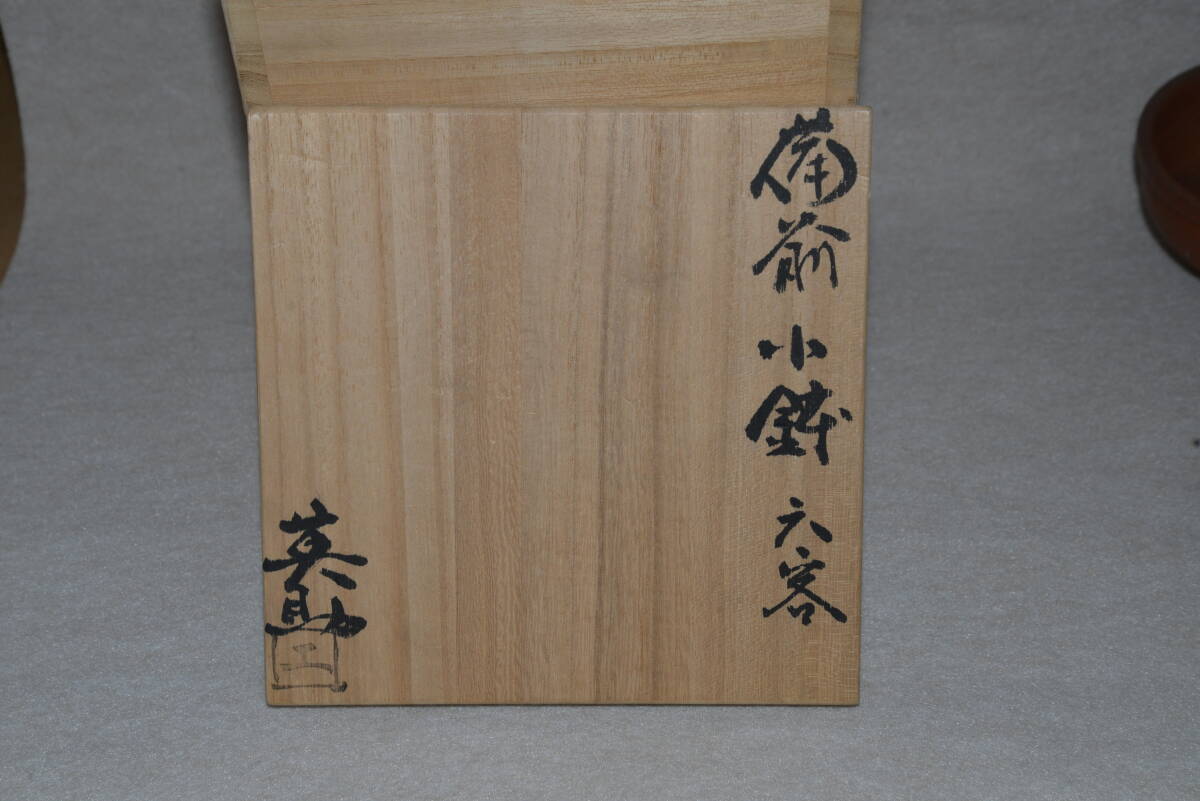 備前 小鉢 六客
英助